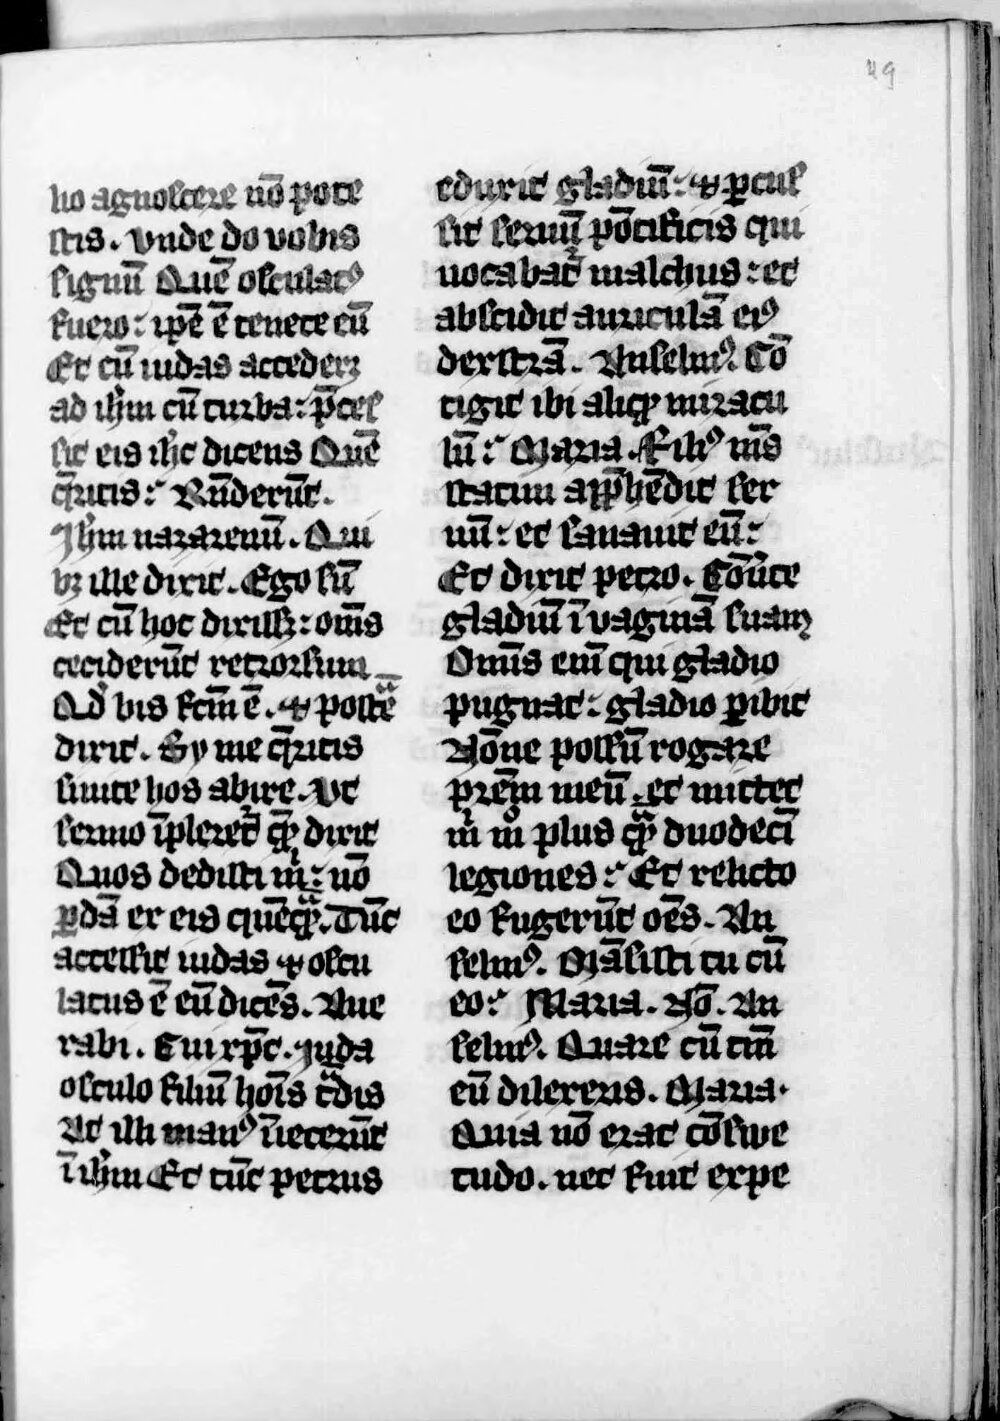 49
lio agnoscere nō pote
stis. vnde do vobis
signū Quē osculatꝰ
fuero: ip̄e ē tenete eū
Et cū iudas accederꝫ
ad ih̄m cū turba: p̄ces
sit eis ih̄c dicens Quē
q̄ritis: Rn̄derūt.
Ih̄m nazarenū. Qui
bꝫ ille dixit. Ego sū
Et cū hoc dixissꝫ: om̄s
ceciderūt retrorsum
Qd̓ bis fcm̄ ē. ⁊ postēa
dixit. Sy me q̄ritis
sinite hos abire. vt
sermo īpleret̓ qꝫ dixit
Quos dedisti m̓: nō
ꝑdā ex eis quēqꝫ. Tūc
accessit iudas ⁊ oscu
latus ē eū dicēs. Aue
rabi. Cui xp̄c. Iuda
osculo filiū hoīs t̄dis
At illi manꝰ īiecerūt
ī ih̄m Et tūc petrus
eduxit gladiū: ⁊ ꝑcus
sit seruū pōtificis qui
uocabat̓ malchus: et
abscidit auriculā eiꝰ
dextrā. Anselmꝰ. Cō
tigit ibi aliqꝫ miracu
lū: Maria. Filiꝰ mꝰs
statim appͪēdit ser
uū: et sanauit eū:
Et dixit petro. Cōu̓te
gladiū ī vaginā suam
Omīs eim̄ qui gladio
pugnat: gladio ꝑibit
Nōne possū rogare
prēm meū. et mittet
m̓ mͦ plus qͣ duodecī
legiones: Et relicto
eo fugerūt oēs. An
selmꝰ. Māsisti tu cū
eo: Maria. Nō. An
selmꝰ. Quare cū tm̄
eū dilexeris. Maria.
Quia nō erat cōswe
tudo. nec fuit expe